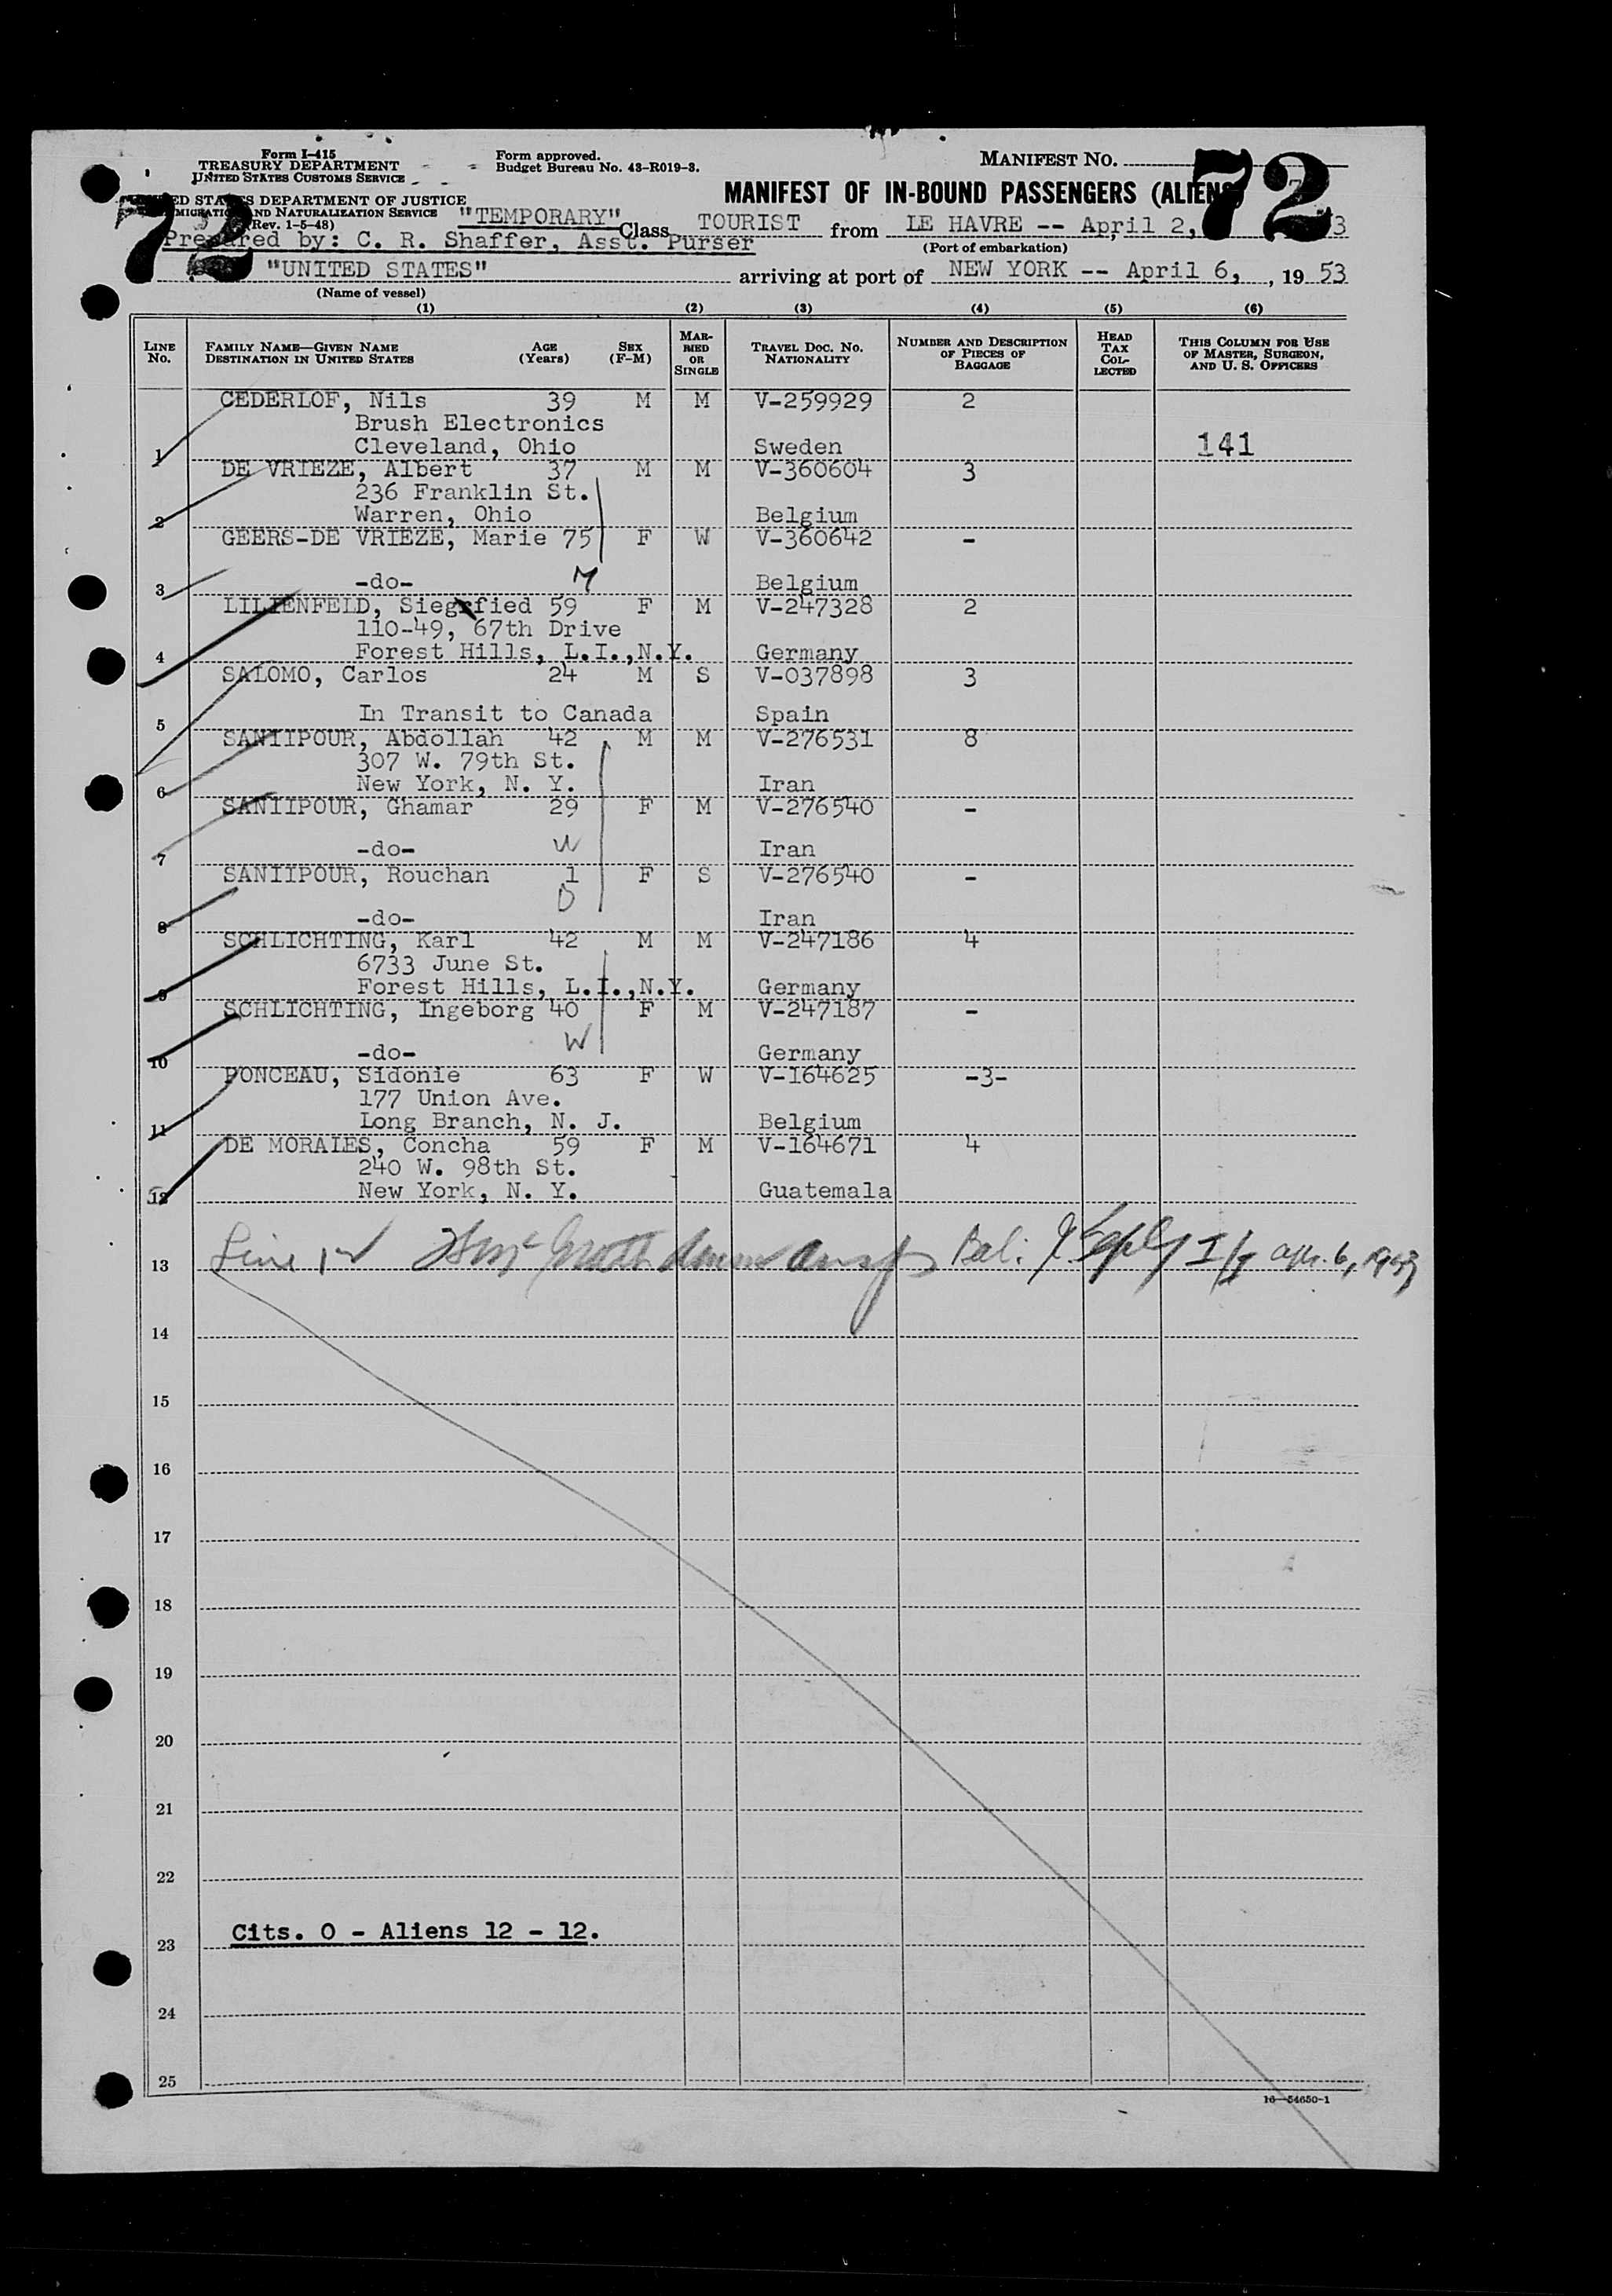 Form I-415
TREASURY DEPARTMENT
UNITED STATES CUSTOMS SERVICE
Form approved.
Budget Bureau No. 43-R019-3.
MANIFEST NO.
72
72
ED STATES DEPARTMENT OF JUSTICE
AND NATURALIZATION SERVICE
(Rev. 1-5-48)
MANIFEST OF IN-BOUND PASSENGERS (ALIENS)
"TEMPORARY" Class TOURIST from LE HAVRE -- April 2, 3
(Port of embarkation)
Prepared by: C. R. Shaffer, Asst. Purser
"UNITED STATES" arriving at port of NEW YORK -- April 6, , 19 53
(Name of vessel)
(1) (2) (3) (4) (5) (6)
LINE NO. FAMILY NAME—GIVEN NAME DESTINATION IN UNITED STATES AGE (Years) SEX (F-M) MARRIED OR SINGLE TRAVEL DOC. NO. NATIONALITY NUMBER AND DESCRIPTION OF PIECES OF BAGGAGE HEAD TAX COLLECTED THIS COLUMN FOR USE OF MASTER, SURGEON, AND U. S. OFFICERS
CEDERLOF, Nils 39 M M V-259929 2
Brush Electronics
1 Cleveland, Ohio Sweden 141
DE VRIEZE, Albert 37 M M V-360604 3
236 Franklin St.
2 Warren, Ohio Belgium
GEERS-DE VRIEZE, Marie 75 F W V-360642 -
3 -do- M Belgium
LILIENFELD, Siegrfied 59 F M V-247328 2
110-49, 67th Drive
4 Forest Hills, L.I.,N.Y. Germany
SALOMO, Carlos 24 M S V-037898 3
5 In Transit to Canada Spain
SANIIPOUR, Abdollah 42 M M V-276531 8
307 W. 79th St.
6 New York, N. Y. Iran
SANIIPOUR, Ghamar 29 F M V-276540 -
7 -do- W Iran
SANIIPOUR, Rouchan 1 F S V-276540 -
D
8 -do- Iran
SCHLICHTING, Karl 42 M M V-247186 4
6733 June St.
9 Forest Hills, L.I.,N.Y. Germany
SCHLICHTING, Ingeborg 40 F M V-247187 -
10 -do- W Germany
PONCEAU, Sidonie 63 F W V-164625 -3-
177 Union Ave.
11 Long Branch, N. J. Belgium
DE MORALES, Concha 59 F M V-164671 4
240 W. 98th St.
12 New York, N. Y. Guatemala
13 Line 6, 1953
14
15
16
17
18
19
20
21
22
Cits. 0 - Aliens 12 - 12.
23
24
25
16—54650-1